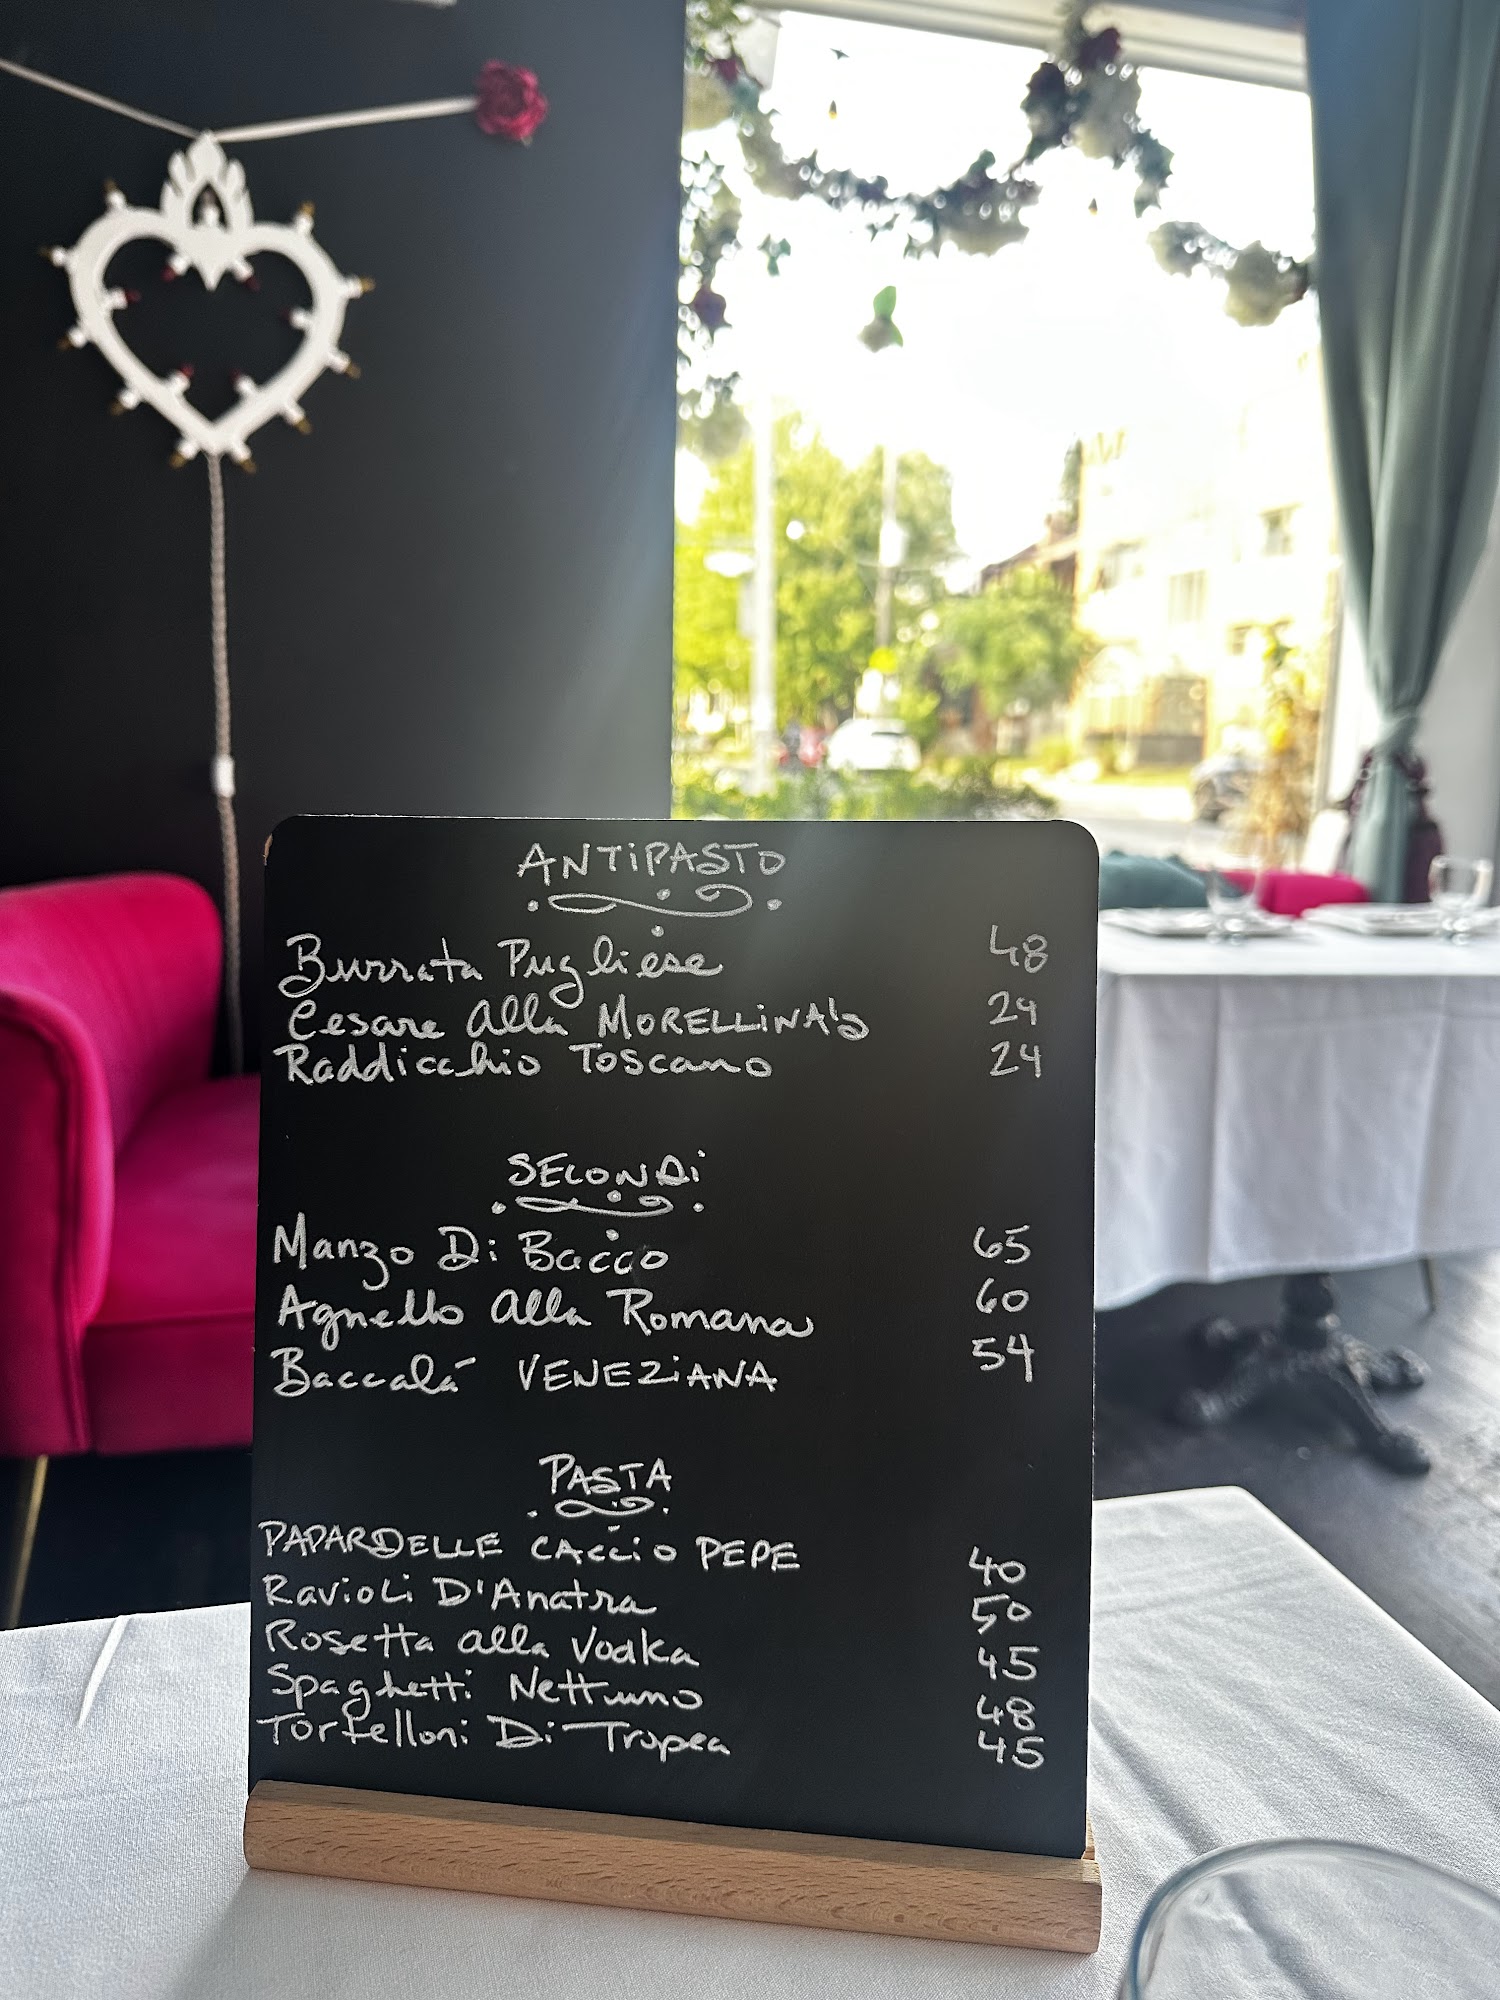 ANTiPASTO
Burrata Pugliese 48
Cesare alla MORELLiNA's 24
Raddicchio Toscano 24
SECONDi
Manzo Di Bacco 65
Agnello alla Romana 60
Baccalá VENEZiANA 54
PASTA
PAPARDELLE CACCiO PEPE 40
Ravioli D'Anatra 50
Rosetta alla Vodka 45
Spaghetti Nettuno 48
Tortelloni Di Tropea 45